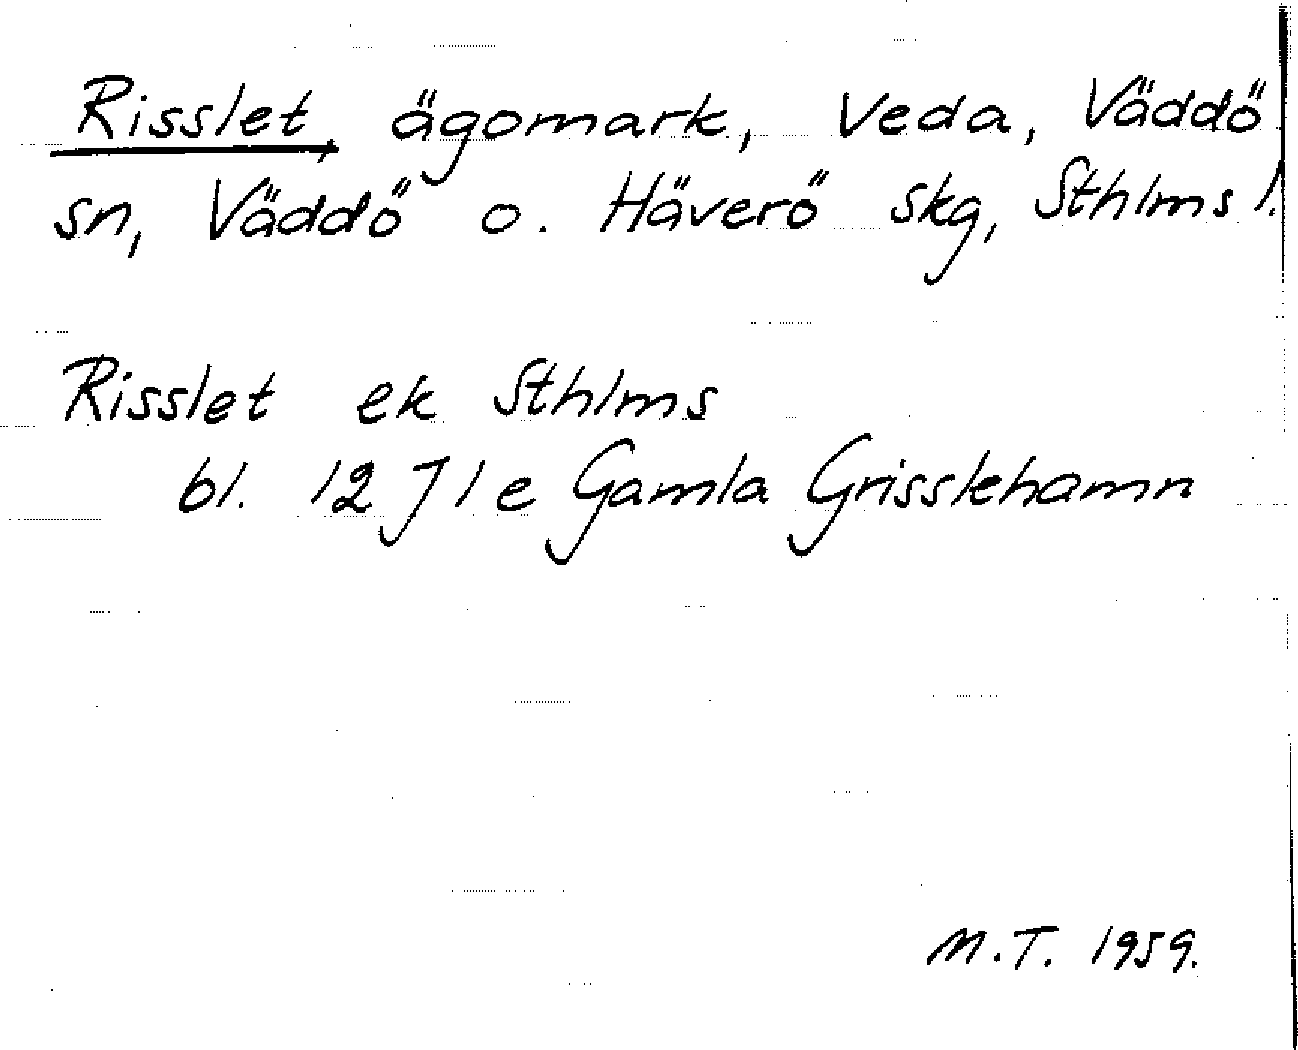 Risslet, ägomark, Veda, Väddö
sn, Väddö o. Häverö skg, Sthlms l.
Risslet ek Sthlms
bl. 12 J 1 e Gamla Grisslehamn
M.T. 1959.